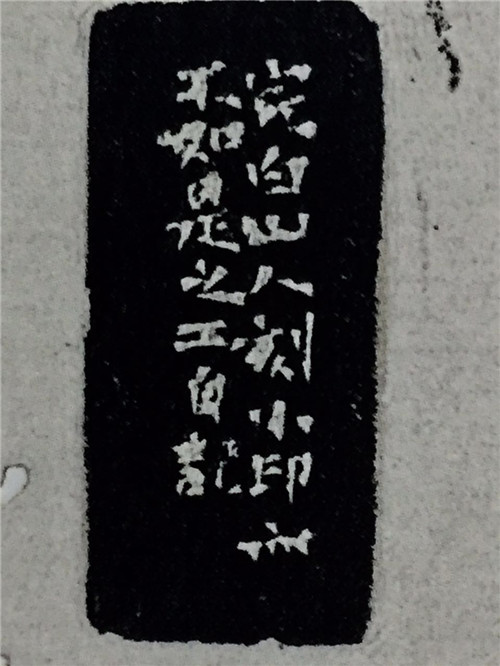 完白山人刻小印亦
不如是之工自記